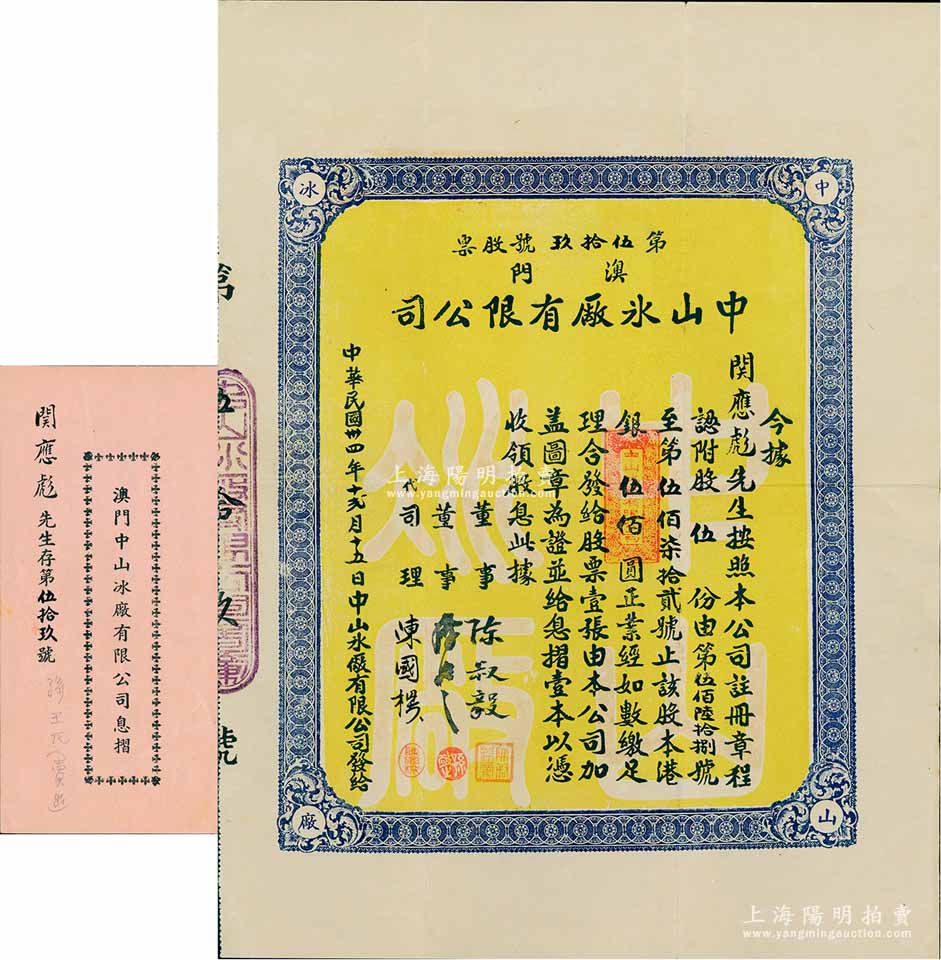 中
山
冰
廠
第伍拾玖號股票
澳門
中山氷廠有限公司
今據
関應彪先生按照本公司註冊章程
認附股伍份由第伍佰陸拾捌號
至第伍佰柒拾貳號止該股本港
銀伍佰圓正業經如數繳足
理合發給股票壹張由本公司加
盖圖章為證並給息摺壹本以憑
收領股息此據
董事 陈叔毅
董事
代司理 陳國樑
中華民國卅四年十弍月十五日中山氷廠有限公司發給
第伍拾玖號
澳門中山冰廠有限公司息摺
関應彪先生存第伍拾玖號
上海陽明拍賣
www.yangmingauction.com
上海陽明拍賣
www.yangmingauction.com